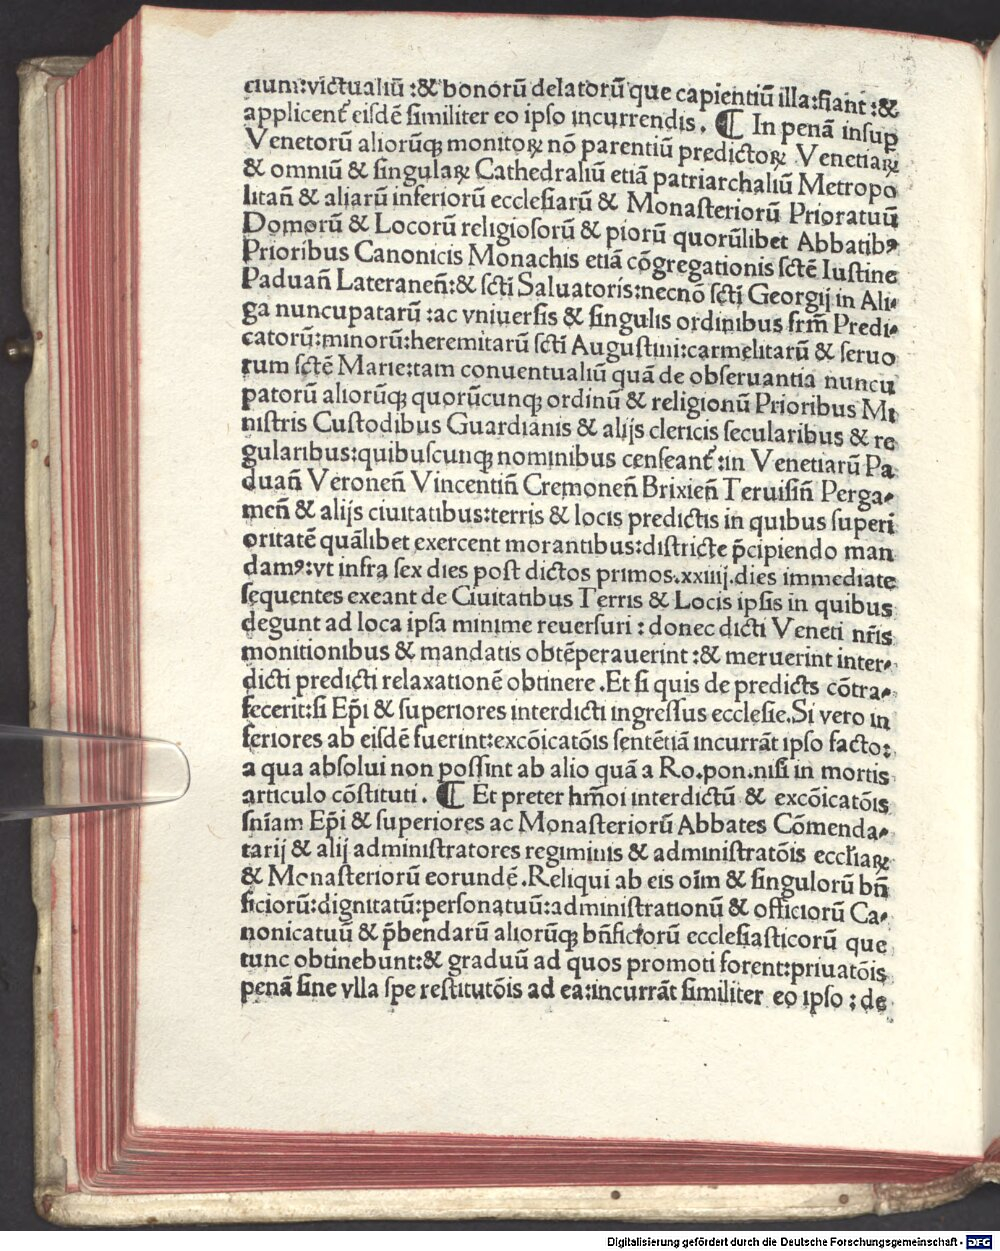 cium:victualiū :& bonorū delatorū que capientiū illa:fiant :&
applicent᷑ eisdē similiter eo ipso incurrendis. ¶ In penā insuꝑ
Venetorū aliorūqꝫ monitoꝝ nō parentiū predictoꝝ Venetiaꝝ
& omniū & singulaꝝ Cathedraliū etiā patriarchaliū Metropo
litañ & aliarū inferiorū ecclesiarū & Monasteriorū Prioratuū
Domorū & Locorū religiosorū & piorū quorūlibet Abbatibꝰ
Prioribus Canonicis Monachis etiā cōgregationis sctē Iustine
Paduañ Lateraneñ:& scti̅ Saluatoris:necnō scti̅ Georgij in Ali⸗
ga nuncupatarū :ac vniuersis & singulis ordinibus frm̄ Predi⸗
catorū:minorū:heremitarū scti̅ Augustini:carmelitarū & seruo
rum sctē Marie:tam conuentualiū quā de obseruantia nuncu
patorū aliorūqꝫ quorūcunqꝫ ordinū & religionū Prioribus Mi
nistris Custodibus Guardianis & alijs clericis secularibus & re
gularibus:quibuscunqꝫ nominibus censeant᷑ :in Venetiarū Pa
duañ Veroneñ Vincentiñ Cremoneñ Brixieñ Teruisiñ Perga⸗
meñ & alijs ciuitatibus:terris & locis predictis in quibus superi
oritatē quālibet exercent morantibus:districte p̄cipiendo man
damꝰ:vt infra sex dies post dictos primos.xxiiij.dies immediate
sequentes exeant de Ciuitatibus Terris & Locis ipsis in quibus
degunt ad loca ipsa minime reuersuri : donec dicti Veneti nr̄is
monitionibus & mandatis obtēperauerint :& meruerint inter⸗
dicti predicti relaxationē obtinere .Et si quis de predicts cōtra⸗
fecerit:si Ep̄i & superiores interdicti ingressus ecclesie.Si vero in
feriores ab eisdē fuerint:excōicatōis sentētiā incurrāt ipso facto:
a qua absolui non possint ab alio quā a Ro.pon.nisi in mortis
articulo cōstituti . ¶ Et preter hm̄oi interdictū & excōicatōis
sn̄iam Ep̄i & superiores ac Monasteriorū Abbates Cōmenda⸗
tarij & alij administratores regiminis & administratōis eccl̄iaꝝ
& Monasteriorū eorundē .Reliqui ab eis oīm & singulorū bn̄
ficiorū:dignitatū:personatuū:administrationū & officiorū Ca⸗
nonicatuū & p̄bendarū aliorūqꝫ bn̄fictorū ecclesiasticorū que
tunc obtinebunt:& graduū ad quos promoti forent:priuatōis
penā sine vlla spe restitutōis ad ea:incurrāt similiter eo ipso : de
Digitalisierung gefördert durch die Deutsche Forschungsgemeinschaft - DFG